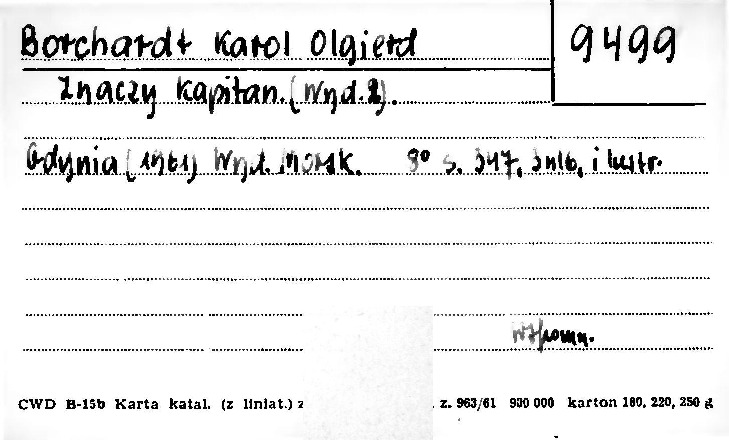 Borchardt Karol Olgierd 9499
Znaczy kapitan. (Wyd. 2).
Gdynia (1961) Wyd. Morsk. 8° s. 347, 3nlb, ilustr.
Wspomn.
CWD B-15b Karta katal. (z liniat.) z . z. 963/61 900 000 karton 180, 220, 250 g